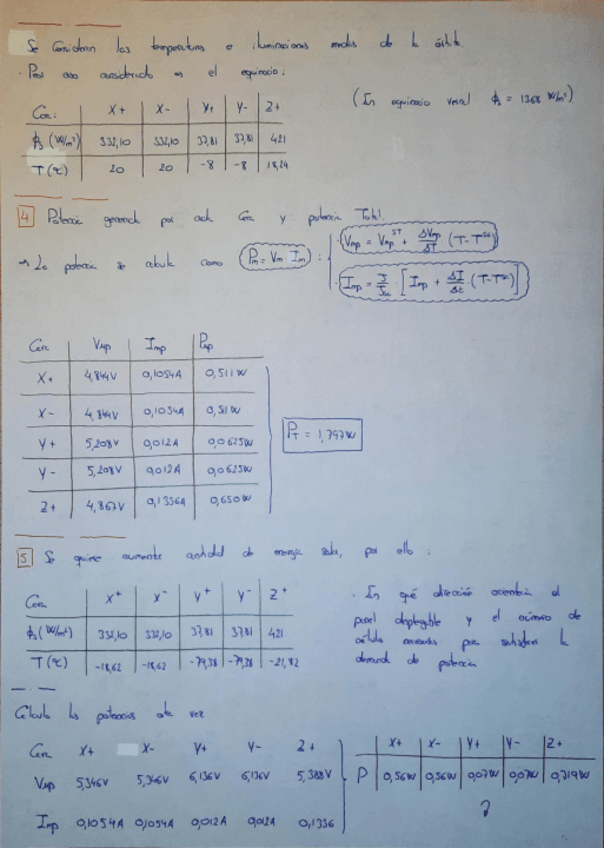 Se Consideran las temperaturas e iluminaciones medias de la órbita.
· Peor caso considerado es el equinocio:
(En equinocio vernal ϕs = 1368 W/m²)
Cara: X+ X- Y+ Y- Z+
ϕs (W/m²) 332,10 332,10 37,81 37,81 421
T (ºC) 20 20 -8 -8 18,24
4 Potencia generada por cada Cara y potencia Total.
→ La potencia se calcula como Pm = Vm Im :
· Vmp = Vmp ST + ΔVmp/ΔT (T - Tst)
· Imp = J/Jst · [Imp + ΔI/Δt · (T - Tst)]
Cara Vmp Imp Pmp
X+ 4,844V 0,1054A 0,511W
X- 4,844V 0,1054A 0,511W
Y+ 5,208V 0,012A 0,0625W
Y- 5,208V 0,012A 0,0625W
Z+ 4,867V 0,1336A 0,650W
PT = 1,797W
5 Se quiere aumentar cantidad de energía solar, por ello :
Cara X+ X- Y+ Y- Z+
ϕs (W/m²) 332,10 332,10 37,81 37,81 421
T (ºC) -18,62 -18,62 -79,38 -79,38 -21,82
· En qué dirección orientaría el
panel desplegable y el número de
células necesarias para satisfacer la
demanda de potencia
Calculo las potencias otra vez
Cara X+ X- Y+ Y- Z+
Vmp 5,346V 5,346V 6,136V 6,136V 5,388V
Imp 0,1054A 0,1054A 0,012A 0,012A 0,1336
X+ X- Y+ Y- Z+
P 0,56W 0,56W 0,07W 0,07W 0,719W
?